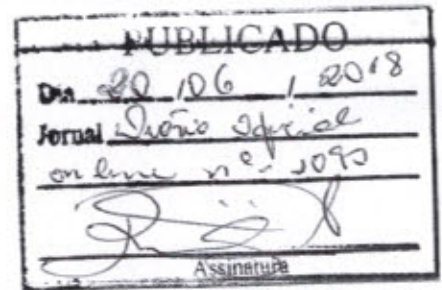 PUBLICADO
Dia 20 / 06 / 2018
Jornal Diário Oficial
on line nº 1090
Assinatura